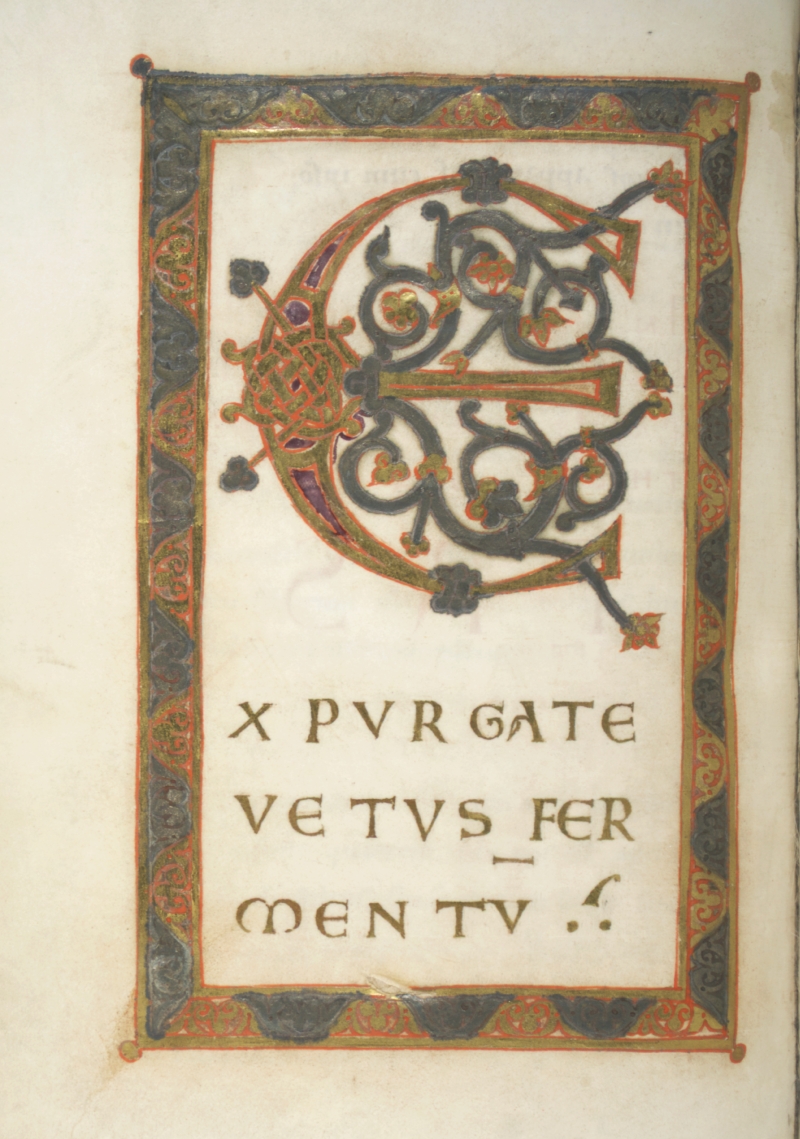 E
XPURGATE
VETUS FER
MENTŪ